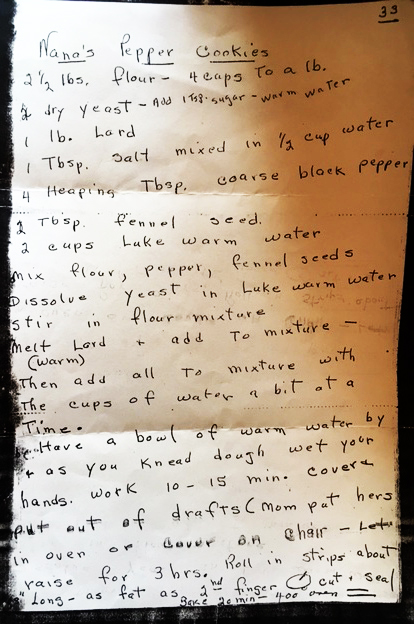 33
Nana's Pepper Cookies
2 1/2 lbs. flour - 4 cups To a lb.
2 dry yeast - Add 1 tsp. sugar - warm water
1 lb. Lard
1 Tbsp. Salt mixed in 1/2 cup water
4 Heaping Tbsp. coarse black pepper
2 Tbsp. fennel seed.
2 cups Luke warm water
Mix flour, pepper, fennel seeds
Dissolve yeast in Luke warm water
Stir in flour mixture
Melt Lard + add To mixture -
(warm)
Then add all To mixture with
The cups of water a bit at a
Time.
Have a bowl of warm water by
+ as you Knead dough wet your
hands. work 10-15 min. cover +
put out of drafts (Mom put hers
in oven or cover on chair - Let
raise for 3 hrs. Roll in strips about
"Long - as fat as 2nd finger cut + seal
Bake 20 min - 400 oven